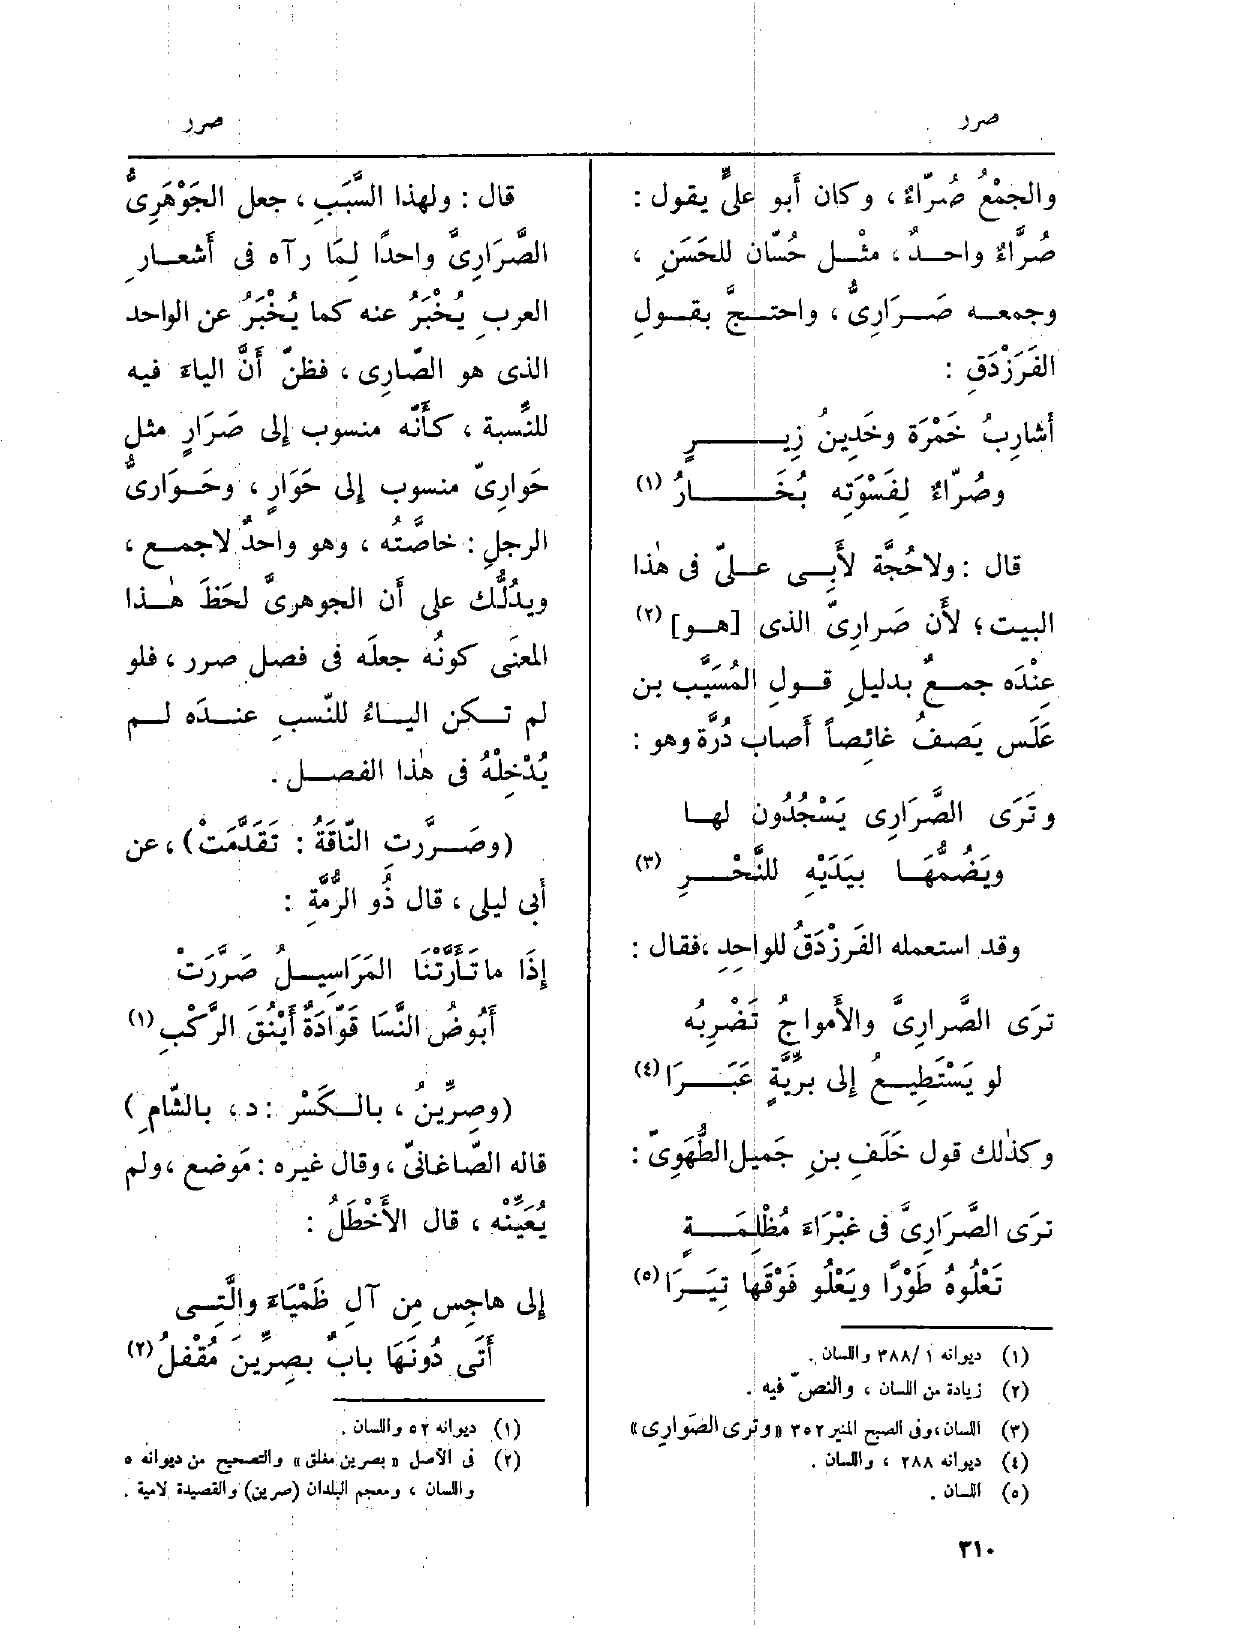 صرر
صرر
والجمْعُ صُرّاءٌ ، وكان أَبو علىٍّ يقول :
صُرَّاءٌ واحـدٌ ، مثـل حُسّان للحَسَنِ ،
وجمعـه صَـرَارِىُّ ، واحتـجَّ بقـولِ
الفَرَزْدَقِ :
أشارِبُ خَمْرَة وخَدِينُ زِيـــرٍ
وصُرّاءٌ لِفَسْوَتِه بُخَـــارُ (١)
قال : ولاحُجَّة لأَبِـى علـىّ فى هٰذا
البيت ؛ لأَن صَرارِىّ الذى [هـو] (٢)
عِنْدَه جمـعٌ بدليلِ قـولِ المُسَيَّب بن
عَلَسٍ يَصفُ غائِصاً أَصاب دُرَّة وهو :
وتَرَى الصَّرَارِى يَسْجُدُون لهـا
ويَضُمُّهَـا بِيَدَيْهِ للنَّحْـــرِ (٣)
وقد استعمله الفَرَزْدَقُ للواحِدِ ، فقال :
تَرَى الصَّرارِىَّ والأَمواجُ تَضْرِبُه
لو يَسْتَطِيـعُ إلى بريَّةٍ عَبَـــرَا (٤)
وكذٰلك قول خَلَفِ بنِ جَمِيل الطُّهَوِىّ :
تَرَى الصَّرَارِىَّ فى غَبْرَاءَ مُظْلِمَـــةٍ
تَعْلُوهُ طَوْرًا ويَعْلُو فَوْقَهَا تِيَـرَا (٥)
(١) ديوانه ١ /٣٨٨ واللسان .
(٢) زيادة من اللسان ، والنصّ فيه .
(٣) اللسان ، وفى الصبح المنير ٣٥٢ «وترى الصّوارى»
(٤) ديوانه ٢٨٨ ، واللسان .
(٥) اللسان .
قال : ولهذا السَّبَبِ ، جعل الجَوْهَرِىُّ
الصَّرَارِىَّ واحدًا لِمَا رآه فى أَشعـارِ
العربِ يُخْبَرُ عنه كما يُخْبَرُ عن الواحد
الذى هو الصّارِى ، فظنّ أَنَّ الياءَ فيه
للنِّسبة ، كأَنّه منسوب إلى صَرَارٍ مثل
حَوارِىّ منسوب إلى حَوَارٍ ، وحَـوَارِىُّ
الرجلِ : خاصَّتُه ، وهو واحدٌ لاجمـع ،
ويدُلُّك على أَن الجوهرىَّ لحَظَ هٰـذا
المعْنَى كونُه جعلَه فى فصل صرر ، فلو
لم تـكن اليـاءُ للنّسبِ عنـدَه لـم
يُدْخِلْهُ فى هٰذا الفصـلِ .
(وصَـرَّرتِ النّاقَةُ : تَقَدَّمَتْ) ، عن
أَبى ليلى ، قال ذُو الرمَّةِ :
إِذَا ما تَأَرَّتْنَا المَرَاسِيـلُ صَرَّرَتْ
أَبُوضُ النَّسَا قَوّادَةٌ أَيْنُقَ الرَّكْبِ (١)
(وصِرِّينُ ، بالـكَسْرِ : د ، بالشّامِ)
قاله الصّاغانىّ ، وقال غيره : مَوضع ، ولم
يُعَيِّنْه ، قال الأَخْطَلُ :
إلى هاجِسٍ مِن آلِ ظَمْيَاءَ والَّتِـى
أَتَى دُونَهَا بابٌ بصِرِّينَ مُقْفَلُ (٢)
(١) ديوانه ٥٢ واللسان .
(٢) فى الأصل «بصرين مغلق» والتصحيح من ديوانه ٥
واللسان ، ومعجم البلدان (صرين) والقصيدة لامية .
٣١٠